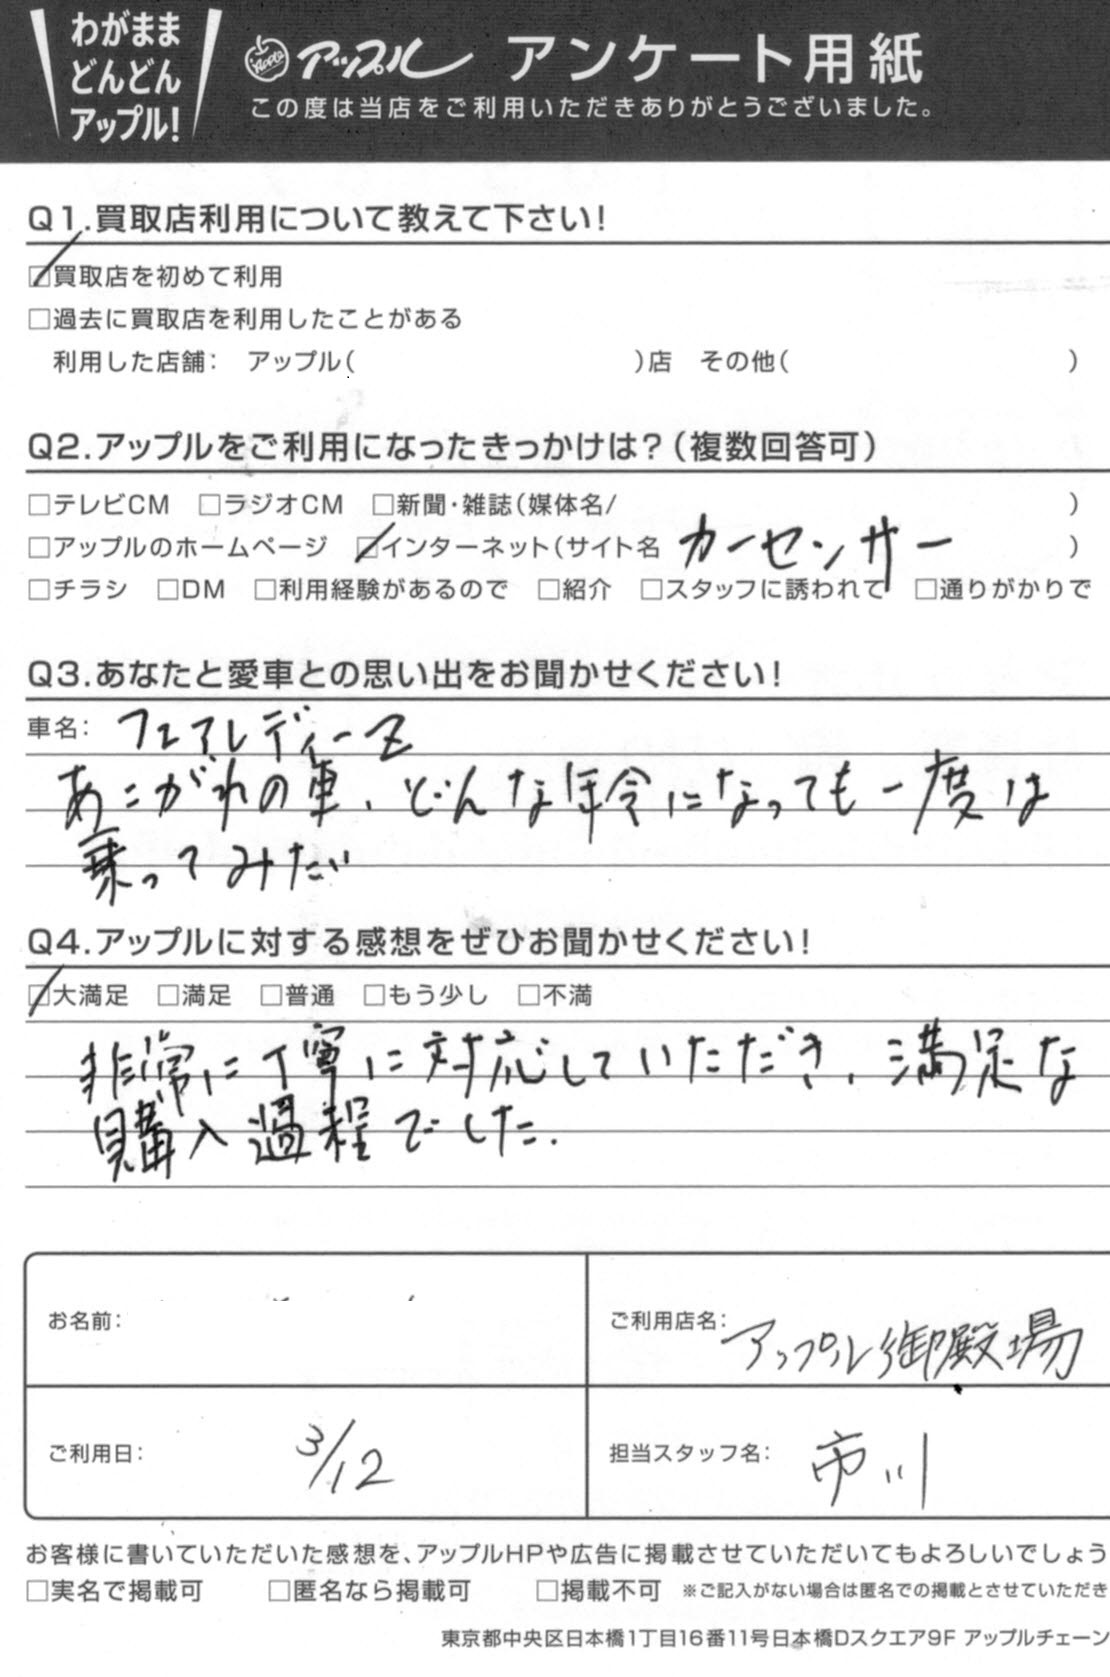 わがまま
どんどん
アップル!
Apple アップル アンケート用紙
この度は当店をご利用いただきありがとうございました。
Q1.買取店利用について教えて下さい!
☑買取店を初めて利用
□過去に買取店を利用したことがある
利用した店舗: アップル( )店 その他( )
Q2.アップルをご利用になったきっかけは?(複数回答可)
□テレビCM □ラジオCM □新聞・雑誌(媒体名/ )
□アップルのホームページ ☑インターネット(サイト名 カーセンサー )
□チラシ □DM □利用経験があるので □紹介 □スタッフに誘われて □通りがかりで
Q3.あなたと愛車との思い出をお聞かせください!
車名: フェアレディーZ
あこがれの車、どんな年令になっても一度は
乗ってみたい
Q4.アップルに対する感想をぜひお聞かせください!
☑大満足 □満足 □普通 □もう少し □不満
非常に丁寧に対応していただき、満足な
購入過程でした.
お名前:
ご利用店名: アップル御殿場
ご利用日: 3/12
担当スタッフ名: 市川
お客様に書いていただいた感想を、アップルHPや広告に掲載させていただいてもよろしいでしょう
□実名で掲載可 □匿名なら掲載可 □掲載不可 ※ご記入がない場合は匿名での掲載とさせていただき
東京都中央区日本橋1丁目16番11号日本橋Dスクエア9F アップルチェーン